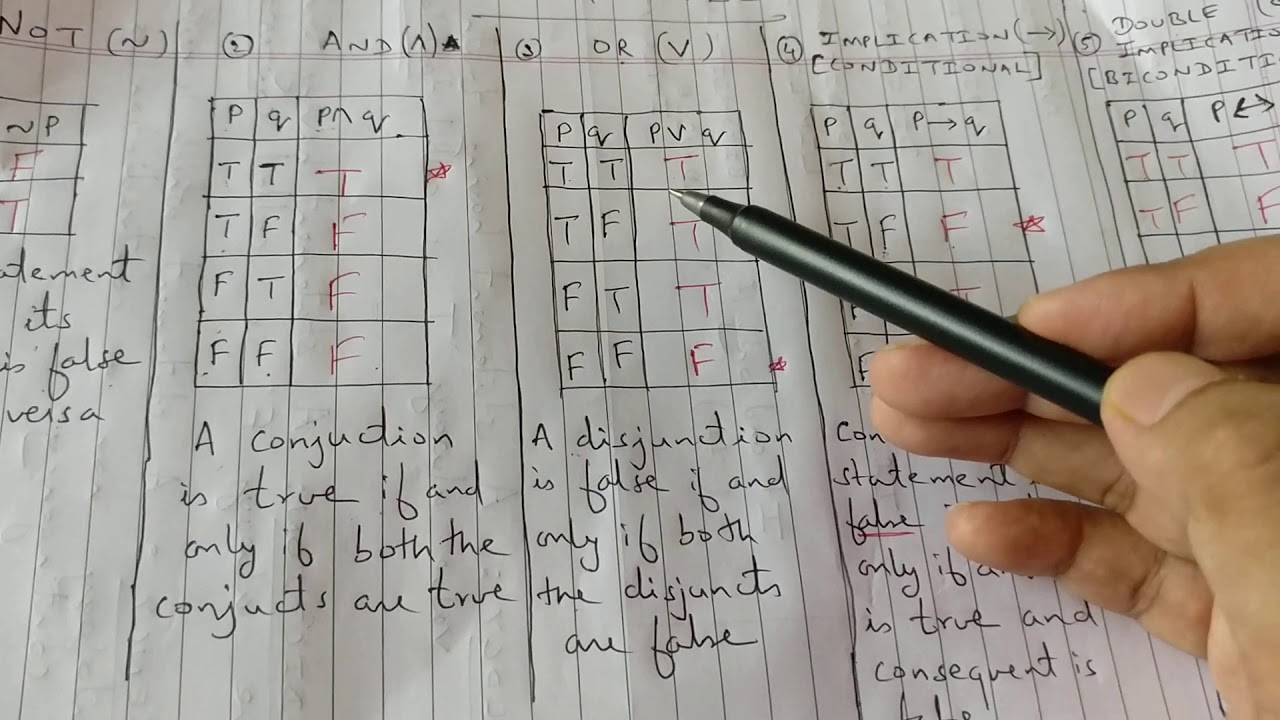 NOT (~)
~P
F
T
atement
its
is false
versa
② AND (∧)
P q P∧q
T T T
T F F
F T F
F F F
A conjuction
is true if and
only if both the
conjucts are true
③ OR (V)
P q P V q
T T T
T F T
F T T
F F F
A disjunction
is false if and
only if both
the disjuncts
are false
④ IMPLICATION (→)
[CONDITIONAL]
P q P→q
T T T
T F F
F
F
Con
statement
false
only if
is true and
consequent is
⑤ DOUBLE
IMPLICATIO
[BICONDITI
P q P↔
T T T
T F F